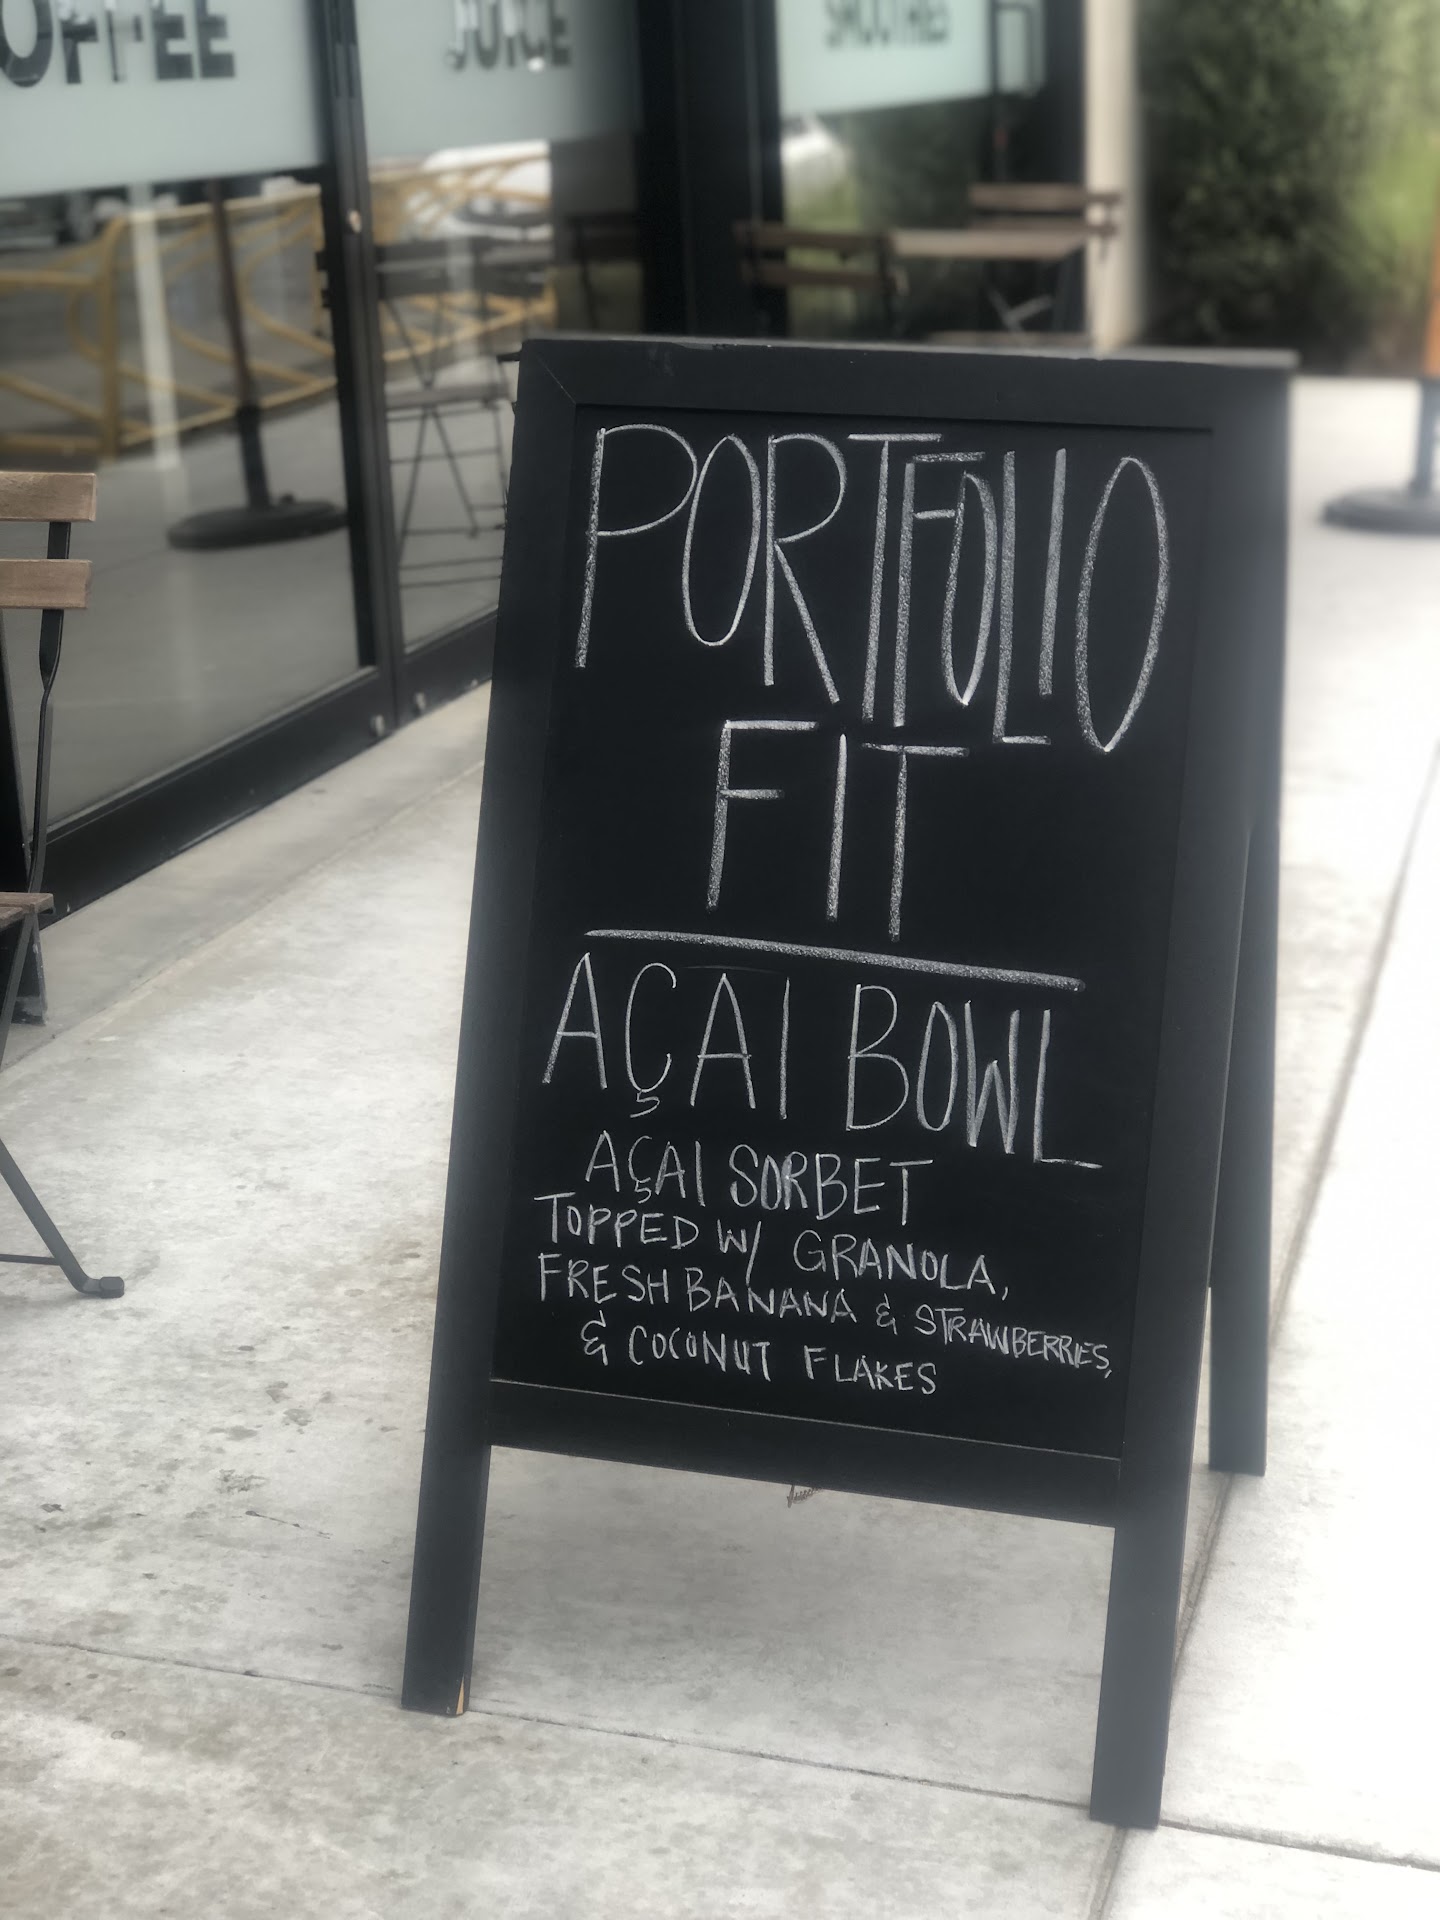 OFFEE
JUICE
SMOOTHIES
PORTFOLIO
FIT
AÇAI BOWL
AÇAI SORBET
TOPPED W/ GRANOLA,
FRESH BANANA & STRAWBERRIES,
& COCONUT FLAKES